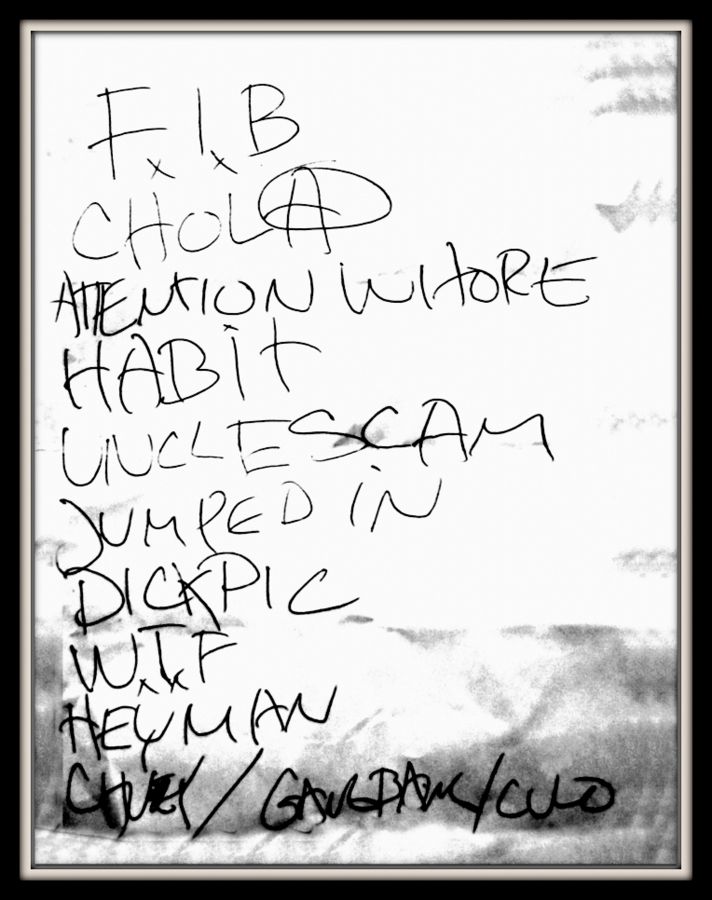 F.I.B
CHOLA
ATTENTION WHORE
HABIT
UNCLE SCAM
JUMPED IN
DICKPIC
W.T.F
HEYMAN
/ GANGBANG/CULO